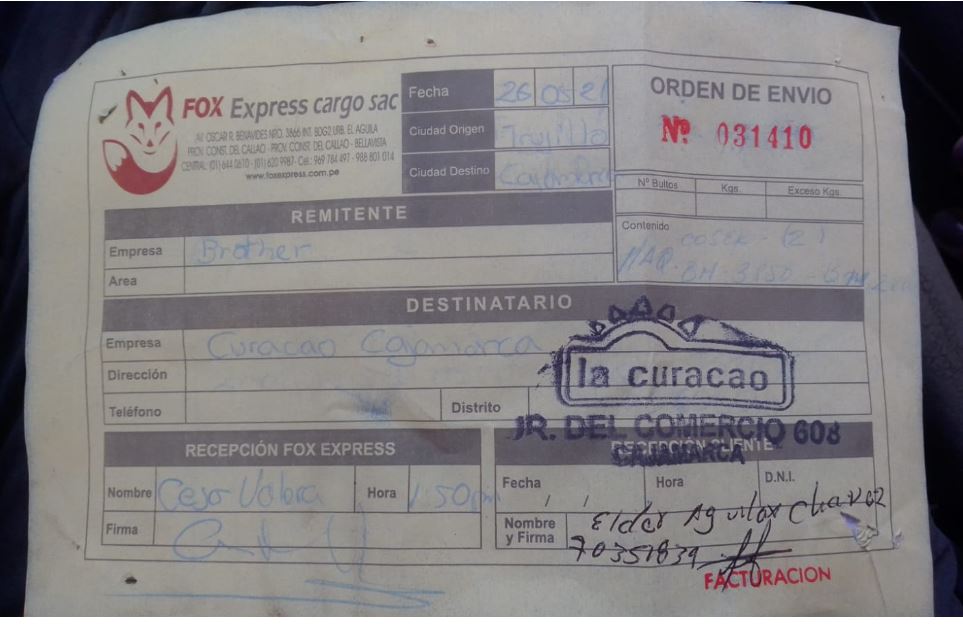 FOX Express cargo sac
AV. OSCAR R. BENAVIDES NRO. 3866 INT. BDG2 URB. EL AGUILA
PROV. CONST. DEL CALLAO - PROV. CONST. DEL CALLAO - BELLAVISTA
CENTRAL: (01) 644 0610 - (01) 620 9987 - Cel.: 969 784 497 - 988 801 014
www.foxexpress.com.pe
Fecha 26 05 21
Ciudad Origen Trujillo
Ciudad Destino Cajamarca
ORDEN DE ENVIO
Nº 031410
Nº Bultos Kgs. Exceso Kgs.
Contenido
COSER - (2)
MAQ. BM-3850 -
REMITENTE
Empresa Brother
Area
DESTINATARIO
Empresa Curacao Cajamarca
Dirección
Teléfono Distrito
la curacao
JR. DEL COMERCIO 608
CAJAMARCA
RECEPCIÓN FOX EXPRESS
Nombre Hora 1 50 pm
Firma
RECEPCIÓN CLIENTE
Fecha / / Hora D.N.I.
Nombre y Firma Elder Aguilar Chavez
70351839
FACTURACION